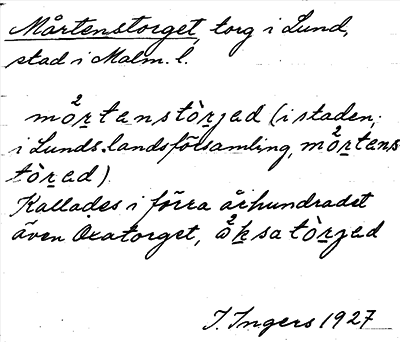 Mårtenstorget, torg i Lund,
stad i Malm. l.
mo²r̲tanstòr̲jad (i staden;
i Lunds landsförsamling, mo²r̲tans-
tòr̲ad).
Kallades i förra århundradet
även Oxatorget, o²k̲satòr̲jad
I. Ingers 1927